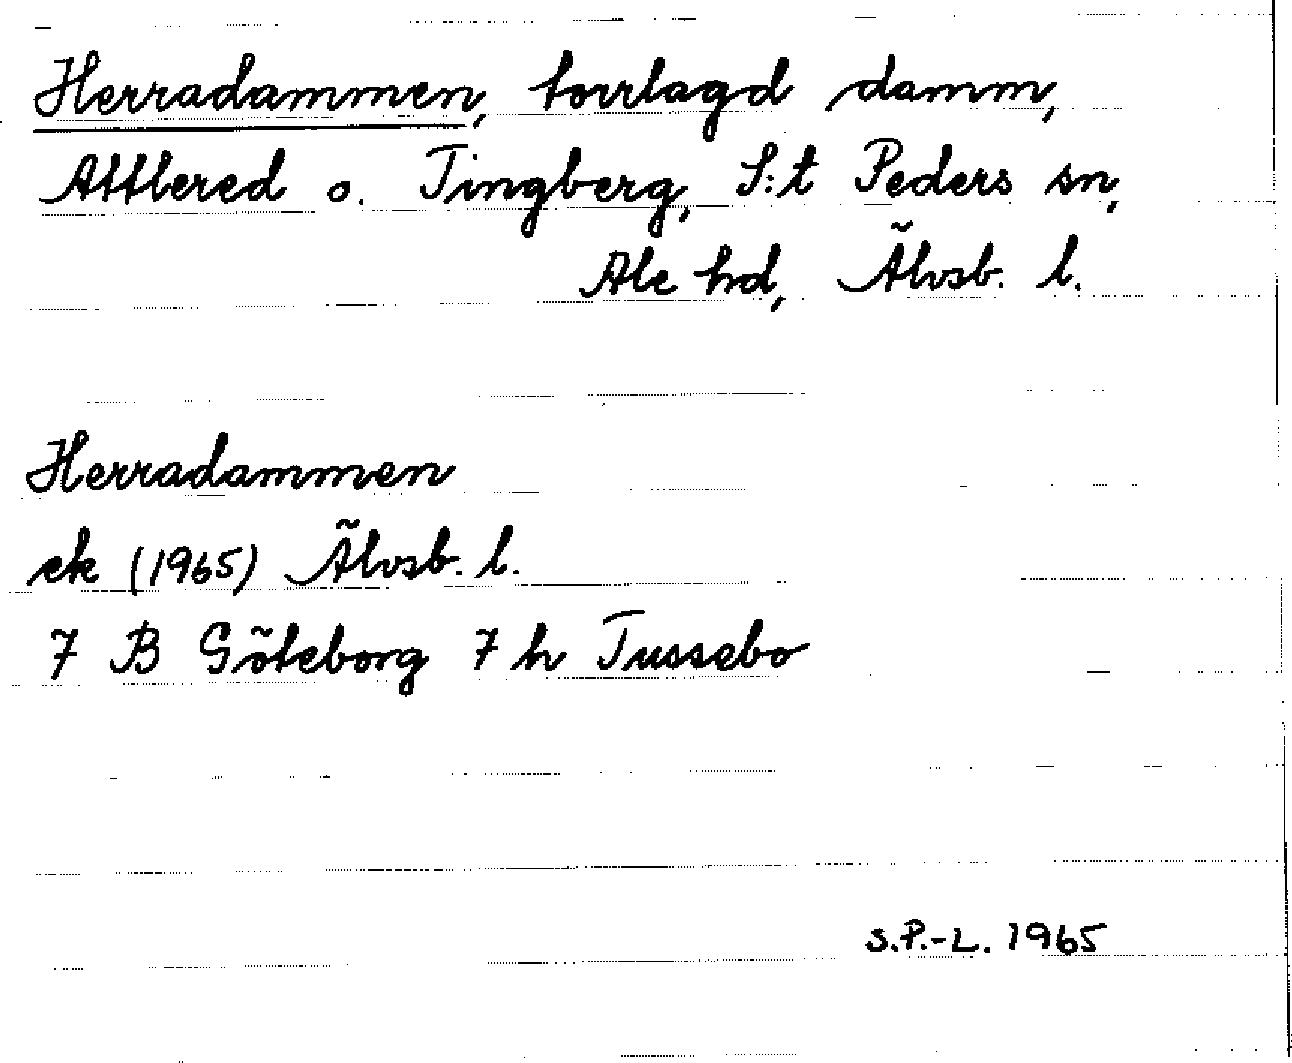 Herradammen, torrlagd damm,
Attlered o. Tingberg, S:t Peders sn,
Ale hd, Älvsb. l.
Herradammen
ek (1965) Älvsb. l.
7 B Göteborg 7 h Tussebo
S.P.-L. 1965